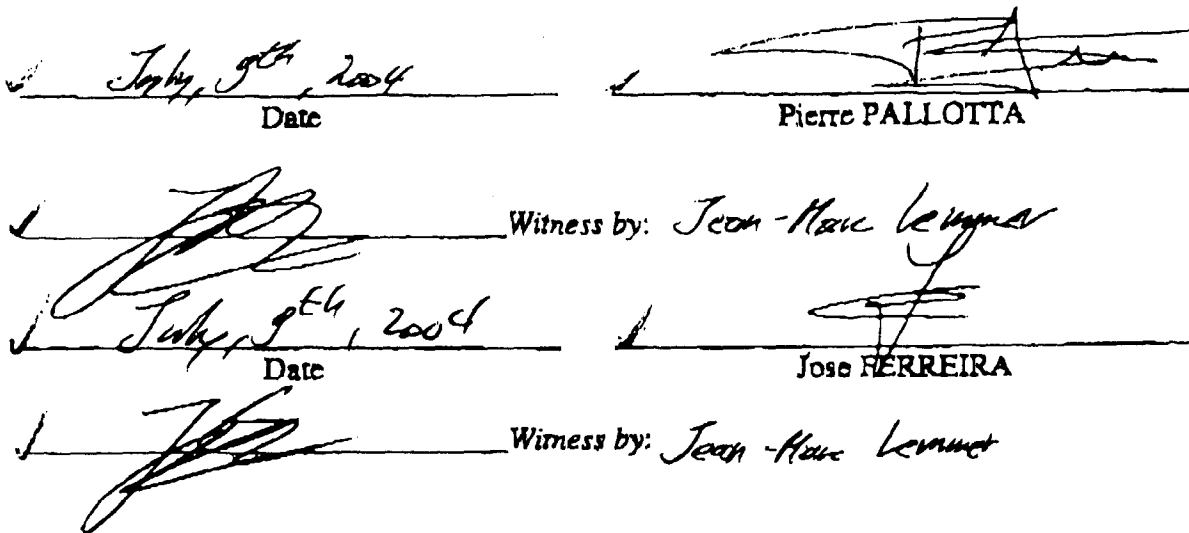 July, 9th, 2004
Date
Pierre PALLOTTA
Witness by: Jean-Marc Lemmer
July, 9th, 2004
Date
Jose FERREIRA
Witness by: Jean-Marc Lemmer